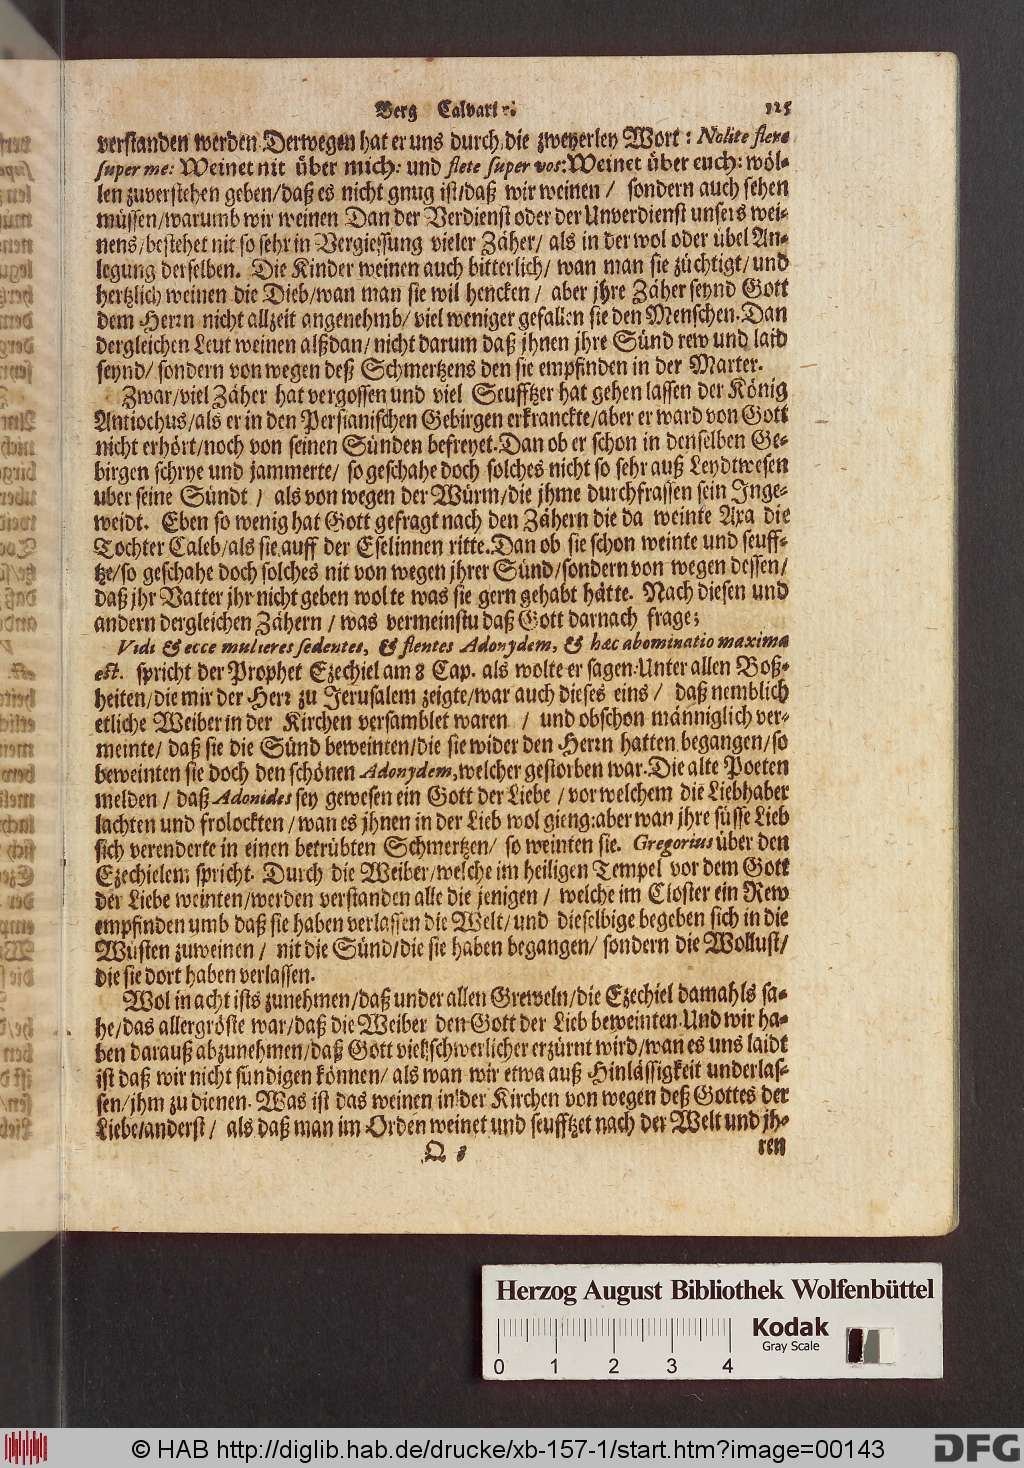 Berg Calvari 125
verstanden werden. Derwegen hat er uns durch die zweyerley Wort: Nolite flere
super me: Weinet nit über mich: und flete super vos: Weinet über euch: wöl-
len zuverstehen geben/daß es nicht gnug ist/daß wir weinen/ sondern auch sehen
müssen/warumb wir weinen Dan der Verdienst oder der Unverdienst unsers wei-
nens/bestehet nit so sehr in Vergiessung vieler Zäher/ als in der wol oder übel An-
legung derselben. Die Kinder weinen auch bitterlich/ wan man sie züchtigt/und
hertzlich weinen die Dieb/wan man sie wil hencken/ aber jhre Zäher seynd Gott
dem Herrn nicht allzeit angenehmb/ viel weniger gefallen sie den Menschen. Dan
dergleichen Leut weinen alßdan/ nicht darum daß jhnen jhre Sünd rew und laid
seynd/ sondern von wegen deß Schmertzens den sie empfinden in der Marter.
Zwar/viel Zäher hat vergossen und viel Seufftzer hat gehen lassen der König
Antiochus/als er in den Persianischen Gebirgen erkranckte/aber er ward von Gott
nicht erhört/noch von seinen Sünden befreyet. Dan ob er schon in denselben Ge-
birgen schrye und jammerte/ so geschahe doch solches nicht so sehr auß Leydtwesen
uber seine Sündt/ als von wegen der Würm/die jhme durchfrassen sein Inge-
weidt. Eben so wenig hat Gott gefragt nach den Zähern die da weinte Axa die
Tochter Caleb/als sie auff der Eselinnen ritte. Dan ob sie schon weinte und seuff-
tze/so geschahe doch solches nit von wegen jhrer Sünd/sondern von wegen dessen/
daß jhr Vatter jhr nicht geben wolte was sie gern gehabt hätte. Nach diesen und
andern dergleichen Zähern/ was vermeinstu daß Gott darnach frage;
Vidi & ecce mulieres sedentes, & flentes Adonydem, & hæc abominatio maxima
est. spricht der Prophet Ezechiel am 8 Cap. als wolte er sagen: Unter allen Boß-
heiten/die mir der Herr zu Jerusalem zeigte/war auch dieses eins/ daß nemblich
etliche Weiber in der Kirchen versamblet waren / und obschon männiglich ver-
meinte/ daß sie die Sünd beweinten/die sie wider den Herrn hatten begangen/so
beweinten sie doch den schönen Adonydem, welcher gestorben war. Die alte Poeten
melden/ daß Adonides sey gewesen ein Gott der Liebe/ vor welchem die Liebhaber
lachten und frolockten/wan es jhnen in der Lieb wol gieng: aber wan jhre süsse Lieb
sich verenderte in einen betrübten Schmertzen/ so weinten sie. Gregorius über den
Ezechielem spricht. Durch die Weiber/welche im heiligen Tempel vor dem Gott
der Liebe weinten/werden verstanden alle die jenigen/ welche im Closter ein Rew
empfinden umb daß sie haben verlassen die Welt/und dieselbige begeben sich in die
Wüsten zuweinen/ nit die Sünd/die sie haben begangen/ sondern die Wollust/
die sie dort haben verlassen.
Wol in acht ists zunehmen/daß under allen Greweln/die Ezechiel damahls sa-
he/das allergröste war/daß die Weiber den Gott der Lieb beweinten. Und wir ha-
ben darauß abzunehmen/daß Gott viel schwerlicher erzürnt wird/wan es uns laidt
ist daß wir nicht sündigen können/ als wan wir etwa auß Hinlässigkeit underlas-
sen/jhm zu dienen. Was ist das weinen in der Kirchen von wegen deß Gottes der
Liebe/anderst/ als daß man im Orden weinet und seufftzet nach der Welt und jh-
Q 3 ren
Herzog August Bibliothek Wolfenbüttel
Kodak
Gray Scale
0 1 2 3 4
© HAB http://diglib.hab.de/drucke/xb-157-1/start.htm?image=00143
DFG